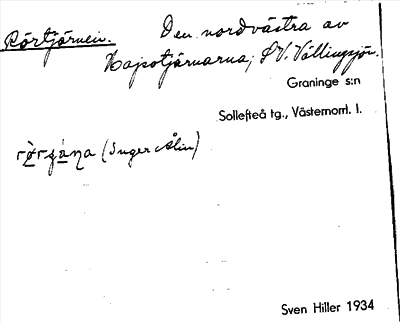 Rörtjärnen. Den nordvästra av
Hajsotjärnarna, S.V. Vällingsjön.
Graninge s:n
Sollefteå tg., Västernorrl. l.
(Inger Ålin)
Sven Hiller 1934